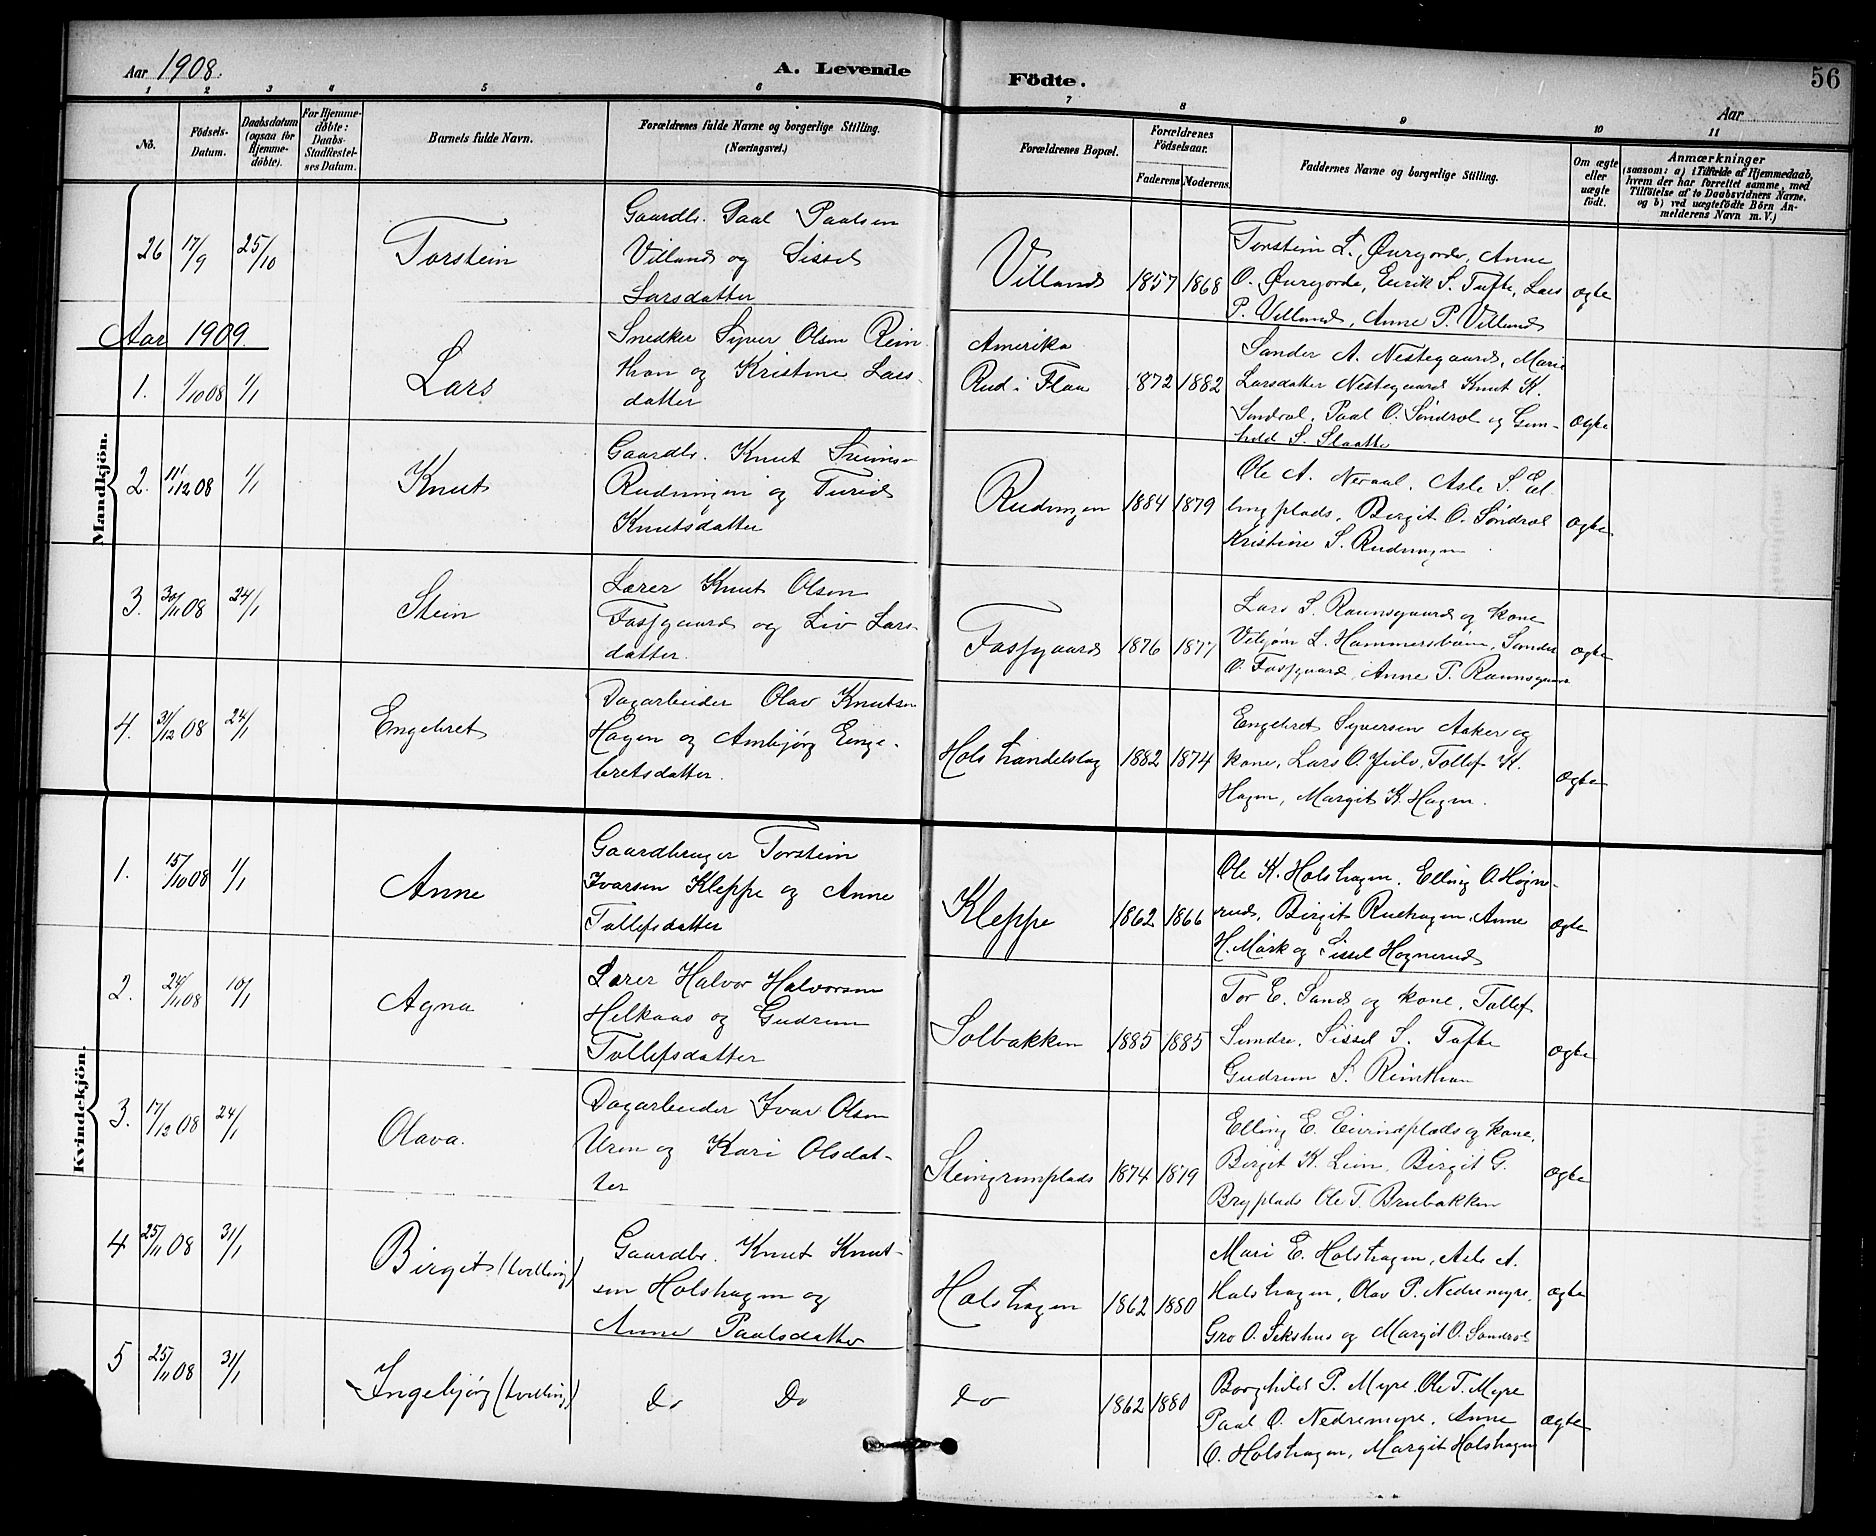 Aar 1908.
A. Levende
Födte.
Aar
56
1 2 3 4 5 6 7 8 9 10 11
No.
Födsels-
Datum.
Daabsdatum
(ogsaa för
Hjemme-
döbte).
For Hjemme-
döbte:
Daabs-
Stadfæstel-
ses Datum.
Barnets fulde Navn.
Forældrenes fulde Navne og borgerlige Stilling.
(Næringsvei.)
Forældrenes Bopæl.
Forældrenes
Födselsaar.
Faderens Moderens.
Faddernes Navne og borgerlige Stilling.
Om ægte
eller
uægte
födt.
Anmærkninger
(saasom: a) i Tilfælde af Hjemmedaab,
hvem der har forrettet samme, med
Tilföielse af to Daabsvidners Navne.
og b) ved uægtefödte Börn An-
melderens Navn m. V.)
Mandkjön.
26 17/9 25/10
Torstein
Gaardbr. Paal Paalsen
Villand og Sissel
Larsdatter
Villand
1857 1868
Torstein L. Øvregorde, Anne
O. Øvregorde, Eirik S. Tufte, Lars
P. Villand, Anne P. Villand
ægte
Aar 1909.
1. 1/10 08 1/1
Lars
Snedker Syver Olsen Rein
thon og Kristine Lars-
datter
Amerika
Rud i Flaa
1872 1882
Sander A. Nestegaard, Marie
Larsdatter Nestegaard Knut K.
Søndrol, Paal O. Søndrol og Gun-
hild S. Slaatto
ægte
2. 11/12 08 1/1
Knut
Gaardbr. Knut
Rudningen og Turid
Knutsdatter
Rudningen
1884 1879
Ole A. Neraal, Asle S. Eel-
lingplads, Birgit O. Søndrol
Kristine S. Rudningen
ægte
3. 30/11 08 24/1
Stein
Lærer Knut Olsen
Fossgaard og Liv Lars-
datter.
Fossgaard
1876 1877
Lars S. Raunsgaard og kone
Vebjørn L. Hammersbøen, Sander
O. Fossgaard, Anne T. Raunsgaard
ægte
4. 31/12 08 24/1
Engebret
Dagarbeider Olav Knutsen
Hagen og Ambjørg Enge-
bretsdatter.
Hols handelslag
1882 1874
Engebret Syversen Aaker og
kone, Lars O. , Tollef K.
Hagen, Margit K. Hagen.
ægte
Kvindekjön.
1. 15/10 08 1/1
Anne
Gaardbruger Torstein
Ivarsen Kleppe og Anne
Tollefsdatter
Kleppe
1862 1866
Ole K. Holshagen, Elling O. Høgne-
rud, Birgit Ruehagen, Anne
H. Mørk og Sissel Hognerud
ægte
2. 24/11 08 10/1
Agna
Lærer Halvor Halvorsen
Helkaas og Gudrun
Tollefsdatter
Solbakken
1885 1885
Tor E. Sand og kone, Tollef
Sundre, Sissel S. Tufte
Gudrun S. Reinthon
ægte
3. 17/12 08 24/1
Olava.
Dagarbeider Ivar Olsen
Uren og Kari Olsdat-
ter
Steingrimplads
1874 1879
Elling E. Eivindplads og kone,
Birgit K. Lien, Birgit G.
Bryplads Ole T. Brubakken
ægte
4 25/11 08 31/1
Birgit (tvilling)
Gaardbr. Knut Knut-
sen Holshagen og
Anne Paalsdatter
Holshagen
1862 1880
Mari E. Holshagen, Asle A.
Holshagen, Olav P. Nedremyre,
Gro O. Sekshus og Margit O. Søndrol
ægte
5 25/11 08 31/1
Ingebjørg (tvilling)
Do Do
Do
1862 1880
Borghild P. Myre, Ole T. Myre
Paal O. Nedremyre, Anne
O. Holshagen, Margit Holshagen
ægte